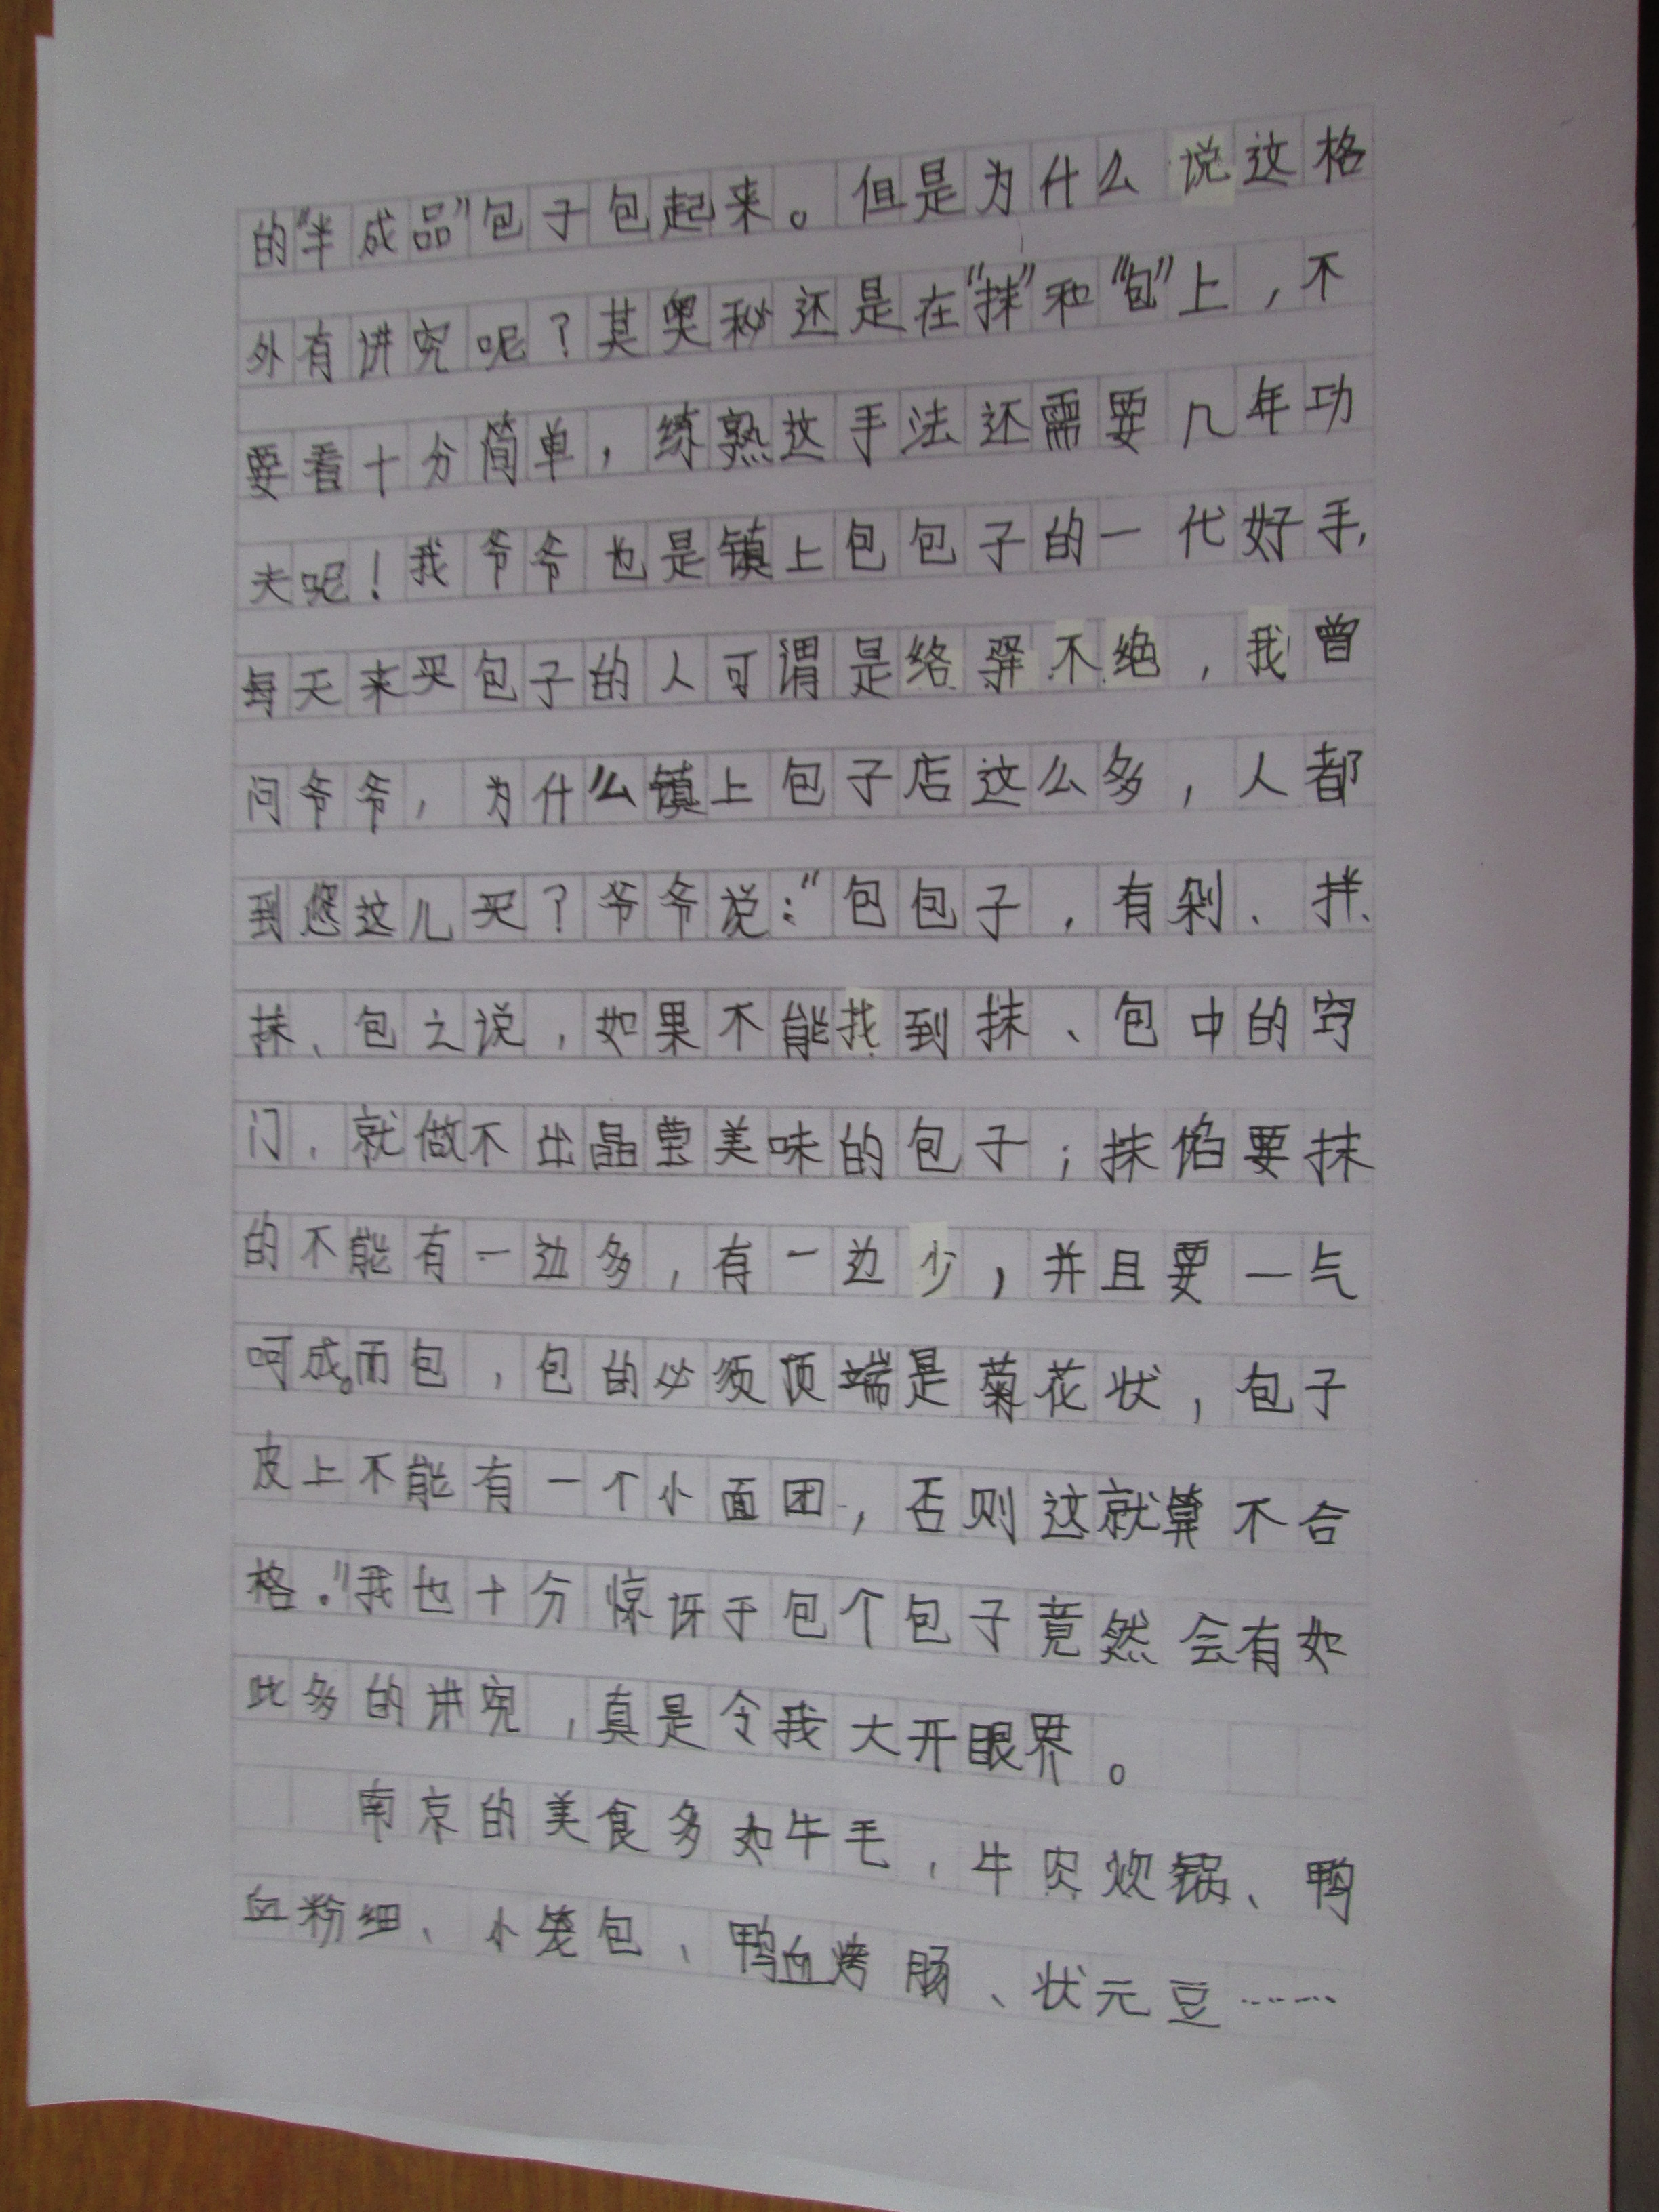 的“半成品”包子包起来。但是为什么说这格
外有讲究呢？其奥秘还是在“抹”和“包”上，不
要看十分简单，练熟这手法还需要几年功
夫呢！我爷爷也是镇上包包子的一代好手，
每天来买包子的人可谓是络驿不绝，我曾
问爷爷，为什么镇上包子店这么多，人都
到您这儿买？爷爷说：“包包子，有剁、拌、
抹、包之说，如果不能找到抹、包中的窍
门，就做不出晶莹美味的包子；抹馅要抹
的不能有一边多，有一边少，并且要一气
呵成。而包，包的必须顶端是菊花状，包子
皮上不能有一个小面团，否则这就算不合
格。”我也十分惊讶于包个包子竟然会有如
此多的讲究，真是令我大开眼界。
南京的美食多如牛毛，牛肉炊锅、鸭
血粉细、小笼包、鸭血烤肠、状元豆……